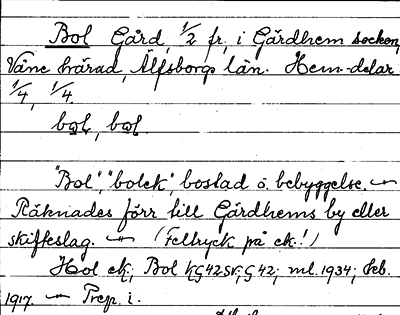 Bol Gård, 1/2 fr, i Gärdhem socken,
Väne härad, Älfsborgs län. Hem-delar
1/4, 1/4.
bωl, bωl.
"Bol", "bolek", bostad o. bebyggelse. —
Räknades förr till Gärdhems by eller
skifteslag. — (Feltryck på ek.!)
Hol ek; Bol KG42SV; G42; ml. 1934; Feb.
1917. — Prep. i.